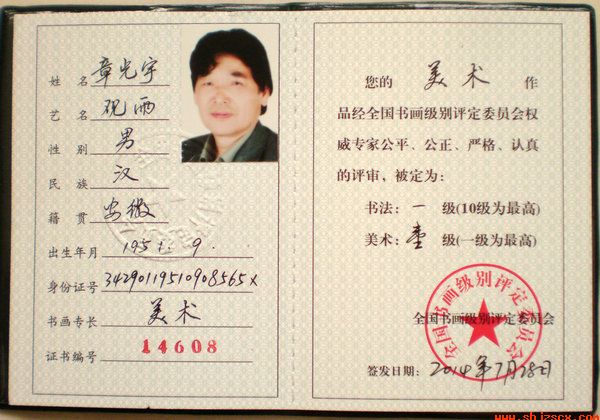 姓名 章光宇
艺名 砚西
性别 男
民族 汉
籍贯 安徽
出生年月 1951.9.
身份证号 34290119510908565X
书画专长 美术
证书编号 14608
您的 美术 作
品经全国书画级别评定委员会权
威专家公平、公正、严格、认真
的评审，被定为：
书法：一 级(10级为最高)
美术：壹 级(一级为最高)
全国书画级别评定委员会
全国书画级别评定委员会
签发日期：2014年7月28日
www.shjzscx.com